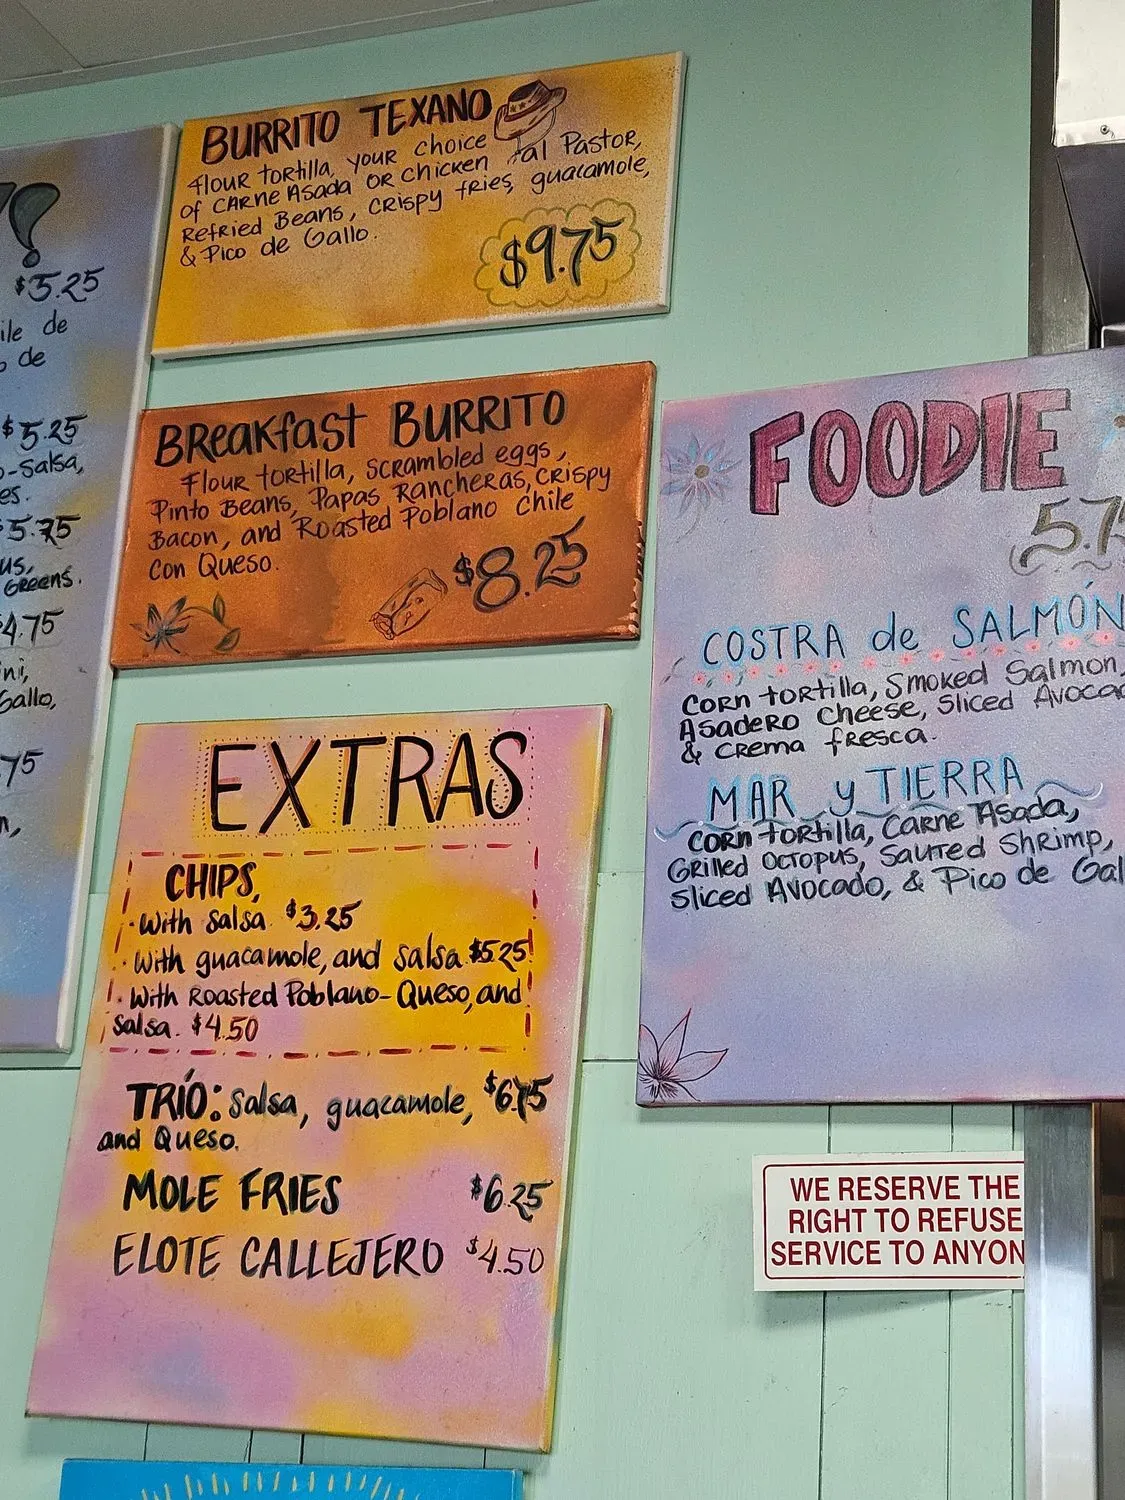 $5.25
ile de
de
$5.25
-Salsa,
es.
5.75
us,
Greens.
4.75
ni,
Gallo,
75
n,
BURRITO TEXANO
flour tortilla, your choice
of CARNE ASada OR chicken al Pastor,
Refried Beans, CRISPY fries, guacamole,
& Pico de Gallo.
$9.75
BReakfast BURRITO
Flour tortilla, scrambled eggs,
Pinto Beans, Papas Rancheras, CRISPY
Bacon, and Roasted Poblano Chile
con Queso.
$8.25
EXTRAS
CHIPS,
· With Salsa. $3.25
· With guacamole, and salsa $5.25
· With ROASTED Poblano-Queso, and
salsa. $4.50
TRÍO: Salsa, guacamole, $6.75
and Queso.
MOLE FRIES $6.25
ELOTE CALLEJERO $4.50
FOODIE
5.7
COSTRA de SALMÓN
CORN tortilla, Smoked Salmon,
Asadero Cheese, Sliced Avoca
& crema fresca.
MAR y TIERRA
CORN tortilla, Carne Asada,
Grilled Octopus, Sauteed Shrimp,
Sliced Avocado, & Pico de Gal
WE RESERVE THE
RIGHT TO REFUSE
SERVICE TO ANYON